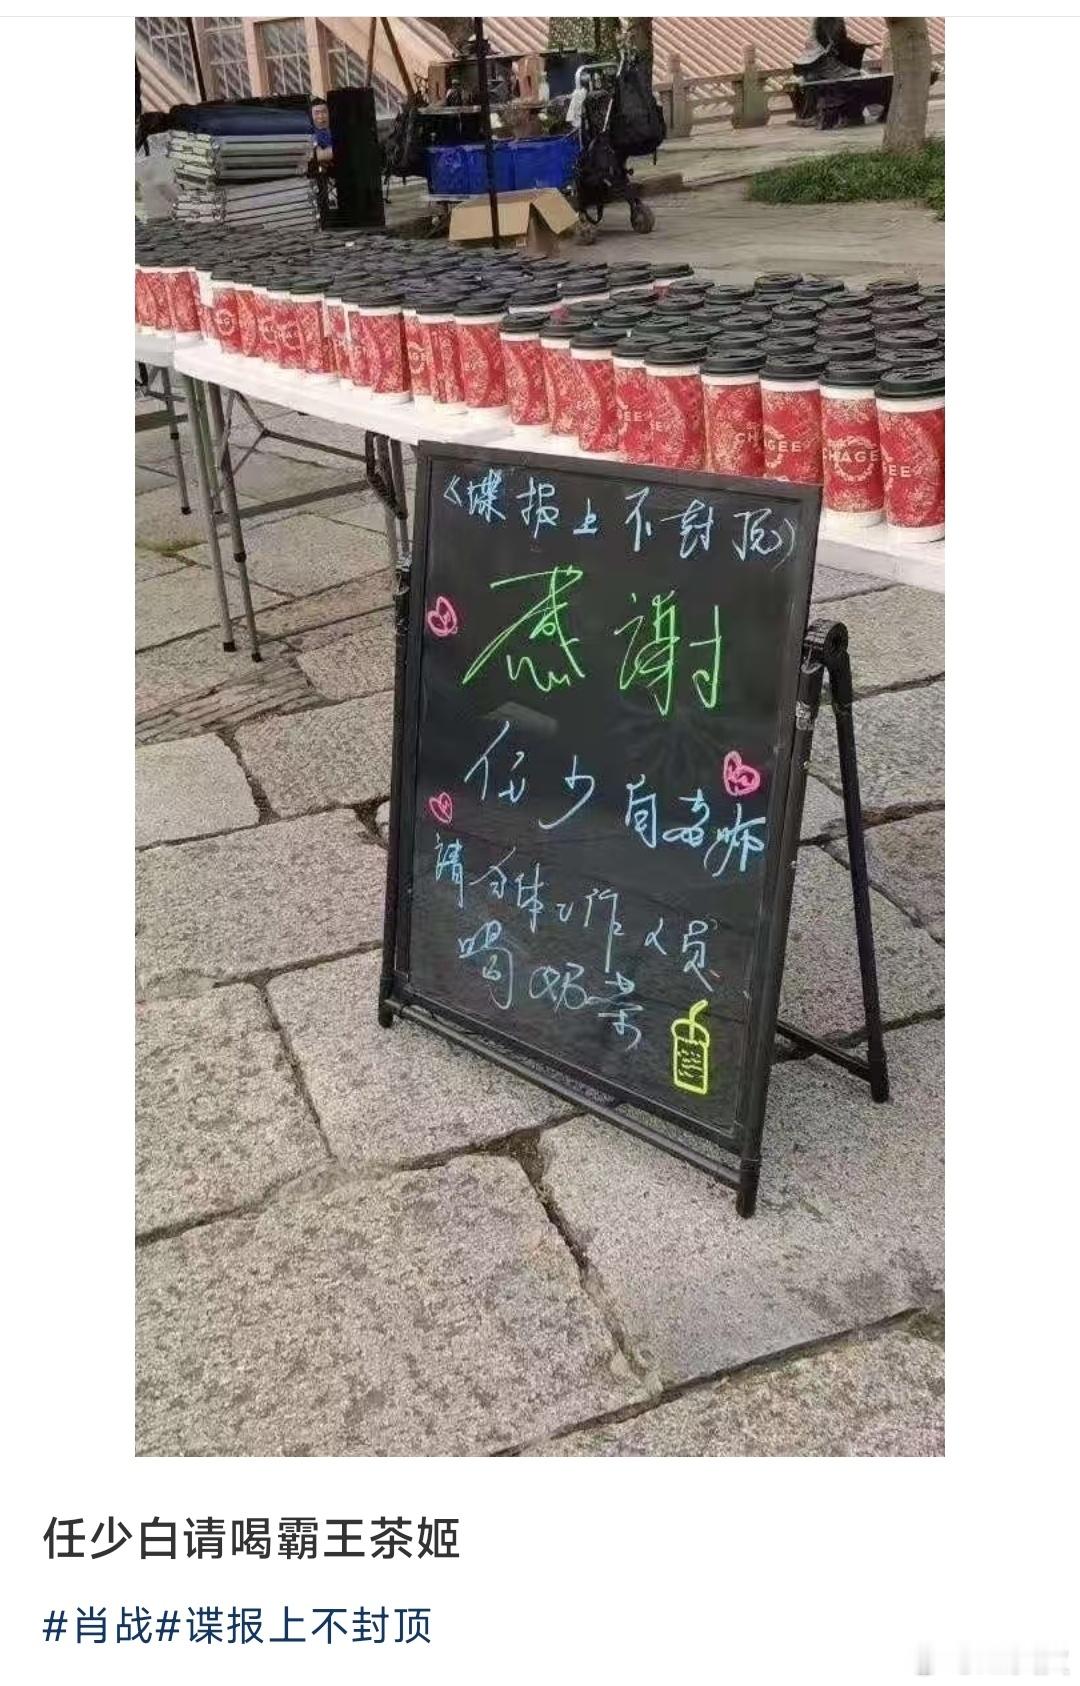 CHAGEE
《谍报上不封顶》
感谢
任少白老师
请全体工作人员
喝奶茶
任少白请喝霸王茶姬
#肖战#谍报上不封顶